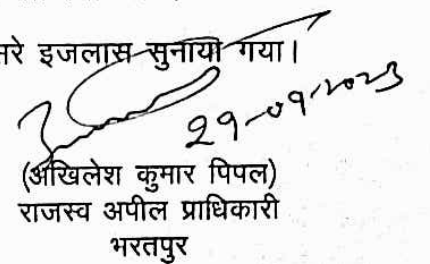 सरे इजलास सुनाया गया।
29-09-2023
(अखिलेश कुमार पिपल)
राजस्व अपील प्राधिकारी
भरतपुर